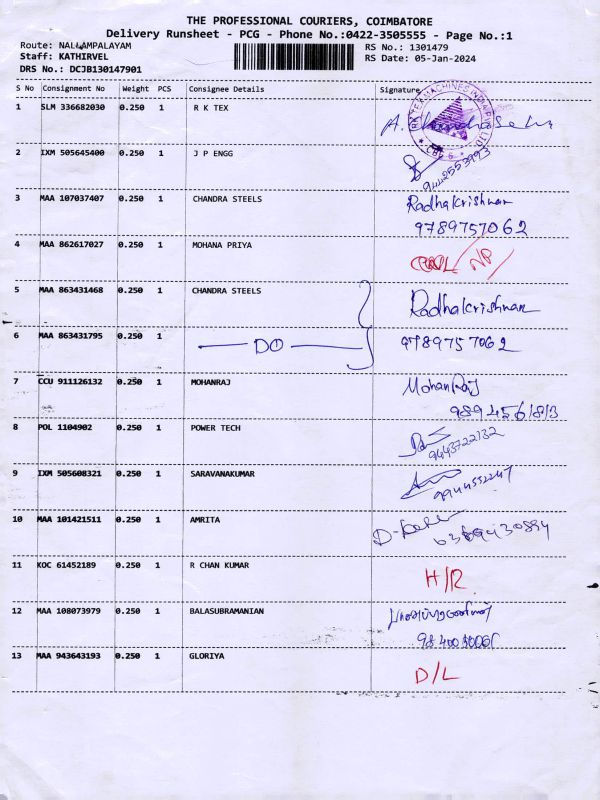 THE PROFESSIONAL COURIERS, COIMBATORE
Delivery Runsheet - PCG - Phone No.:0422-3505555 - Page No.:1
Route: NALLAMPALAYAM RS No.: 1301479
Staff: KATHIRVEL RS Date: 05-Jan-2024
DRS No.: DCJB130147901
S No Consignment No Weight PCS Consignee Details Signature
1 SLM 336682030 0.250 1 R K TEX
2 IXM 505645400 0.250 1 J P ENGG
9442553993
3 MAA 107037407 0.250 1 CHANDRA STEELS Radhakrishnan
9789757062
4 MAA 862617027 0.250 1 MOHANA PRIYA
5 MAA 863431468 0.250 1 CHANDRA STEELS Radhakrishnan
6 MAA 863431795 0.250 1 DO 9789757062
7 CCU 911126132 0.250 1 MOHANRAJ MohanRaj
9894561813
8 POL 1104902 0.250 1 POWER TECH
9443722132
9 IXM 505608321 0.250 1 SARAVANAKUMAR
9944552247
10 MAA 101421511 0.250 1 AMRITA
11 KOC 61452189 0.250 1 R CHAN KUMAR H/R
12 MAA 108073979 0.250 1 BALASUBRAMANIAN பாலசுப்பிரமணியன்
13 MAA 943643193 0.250 1 GLORIYA D/L